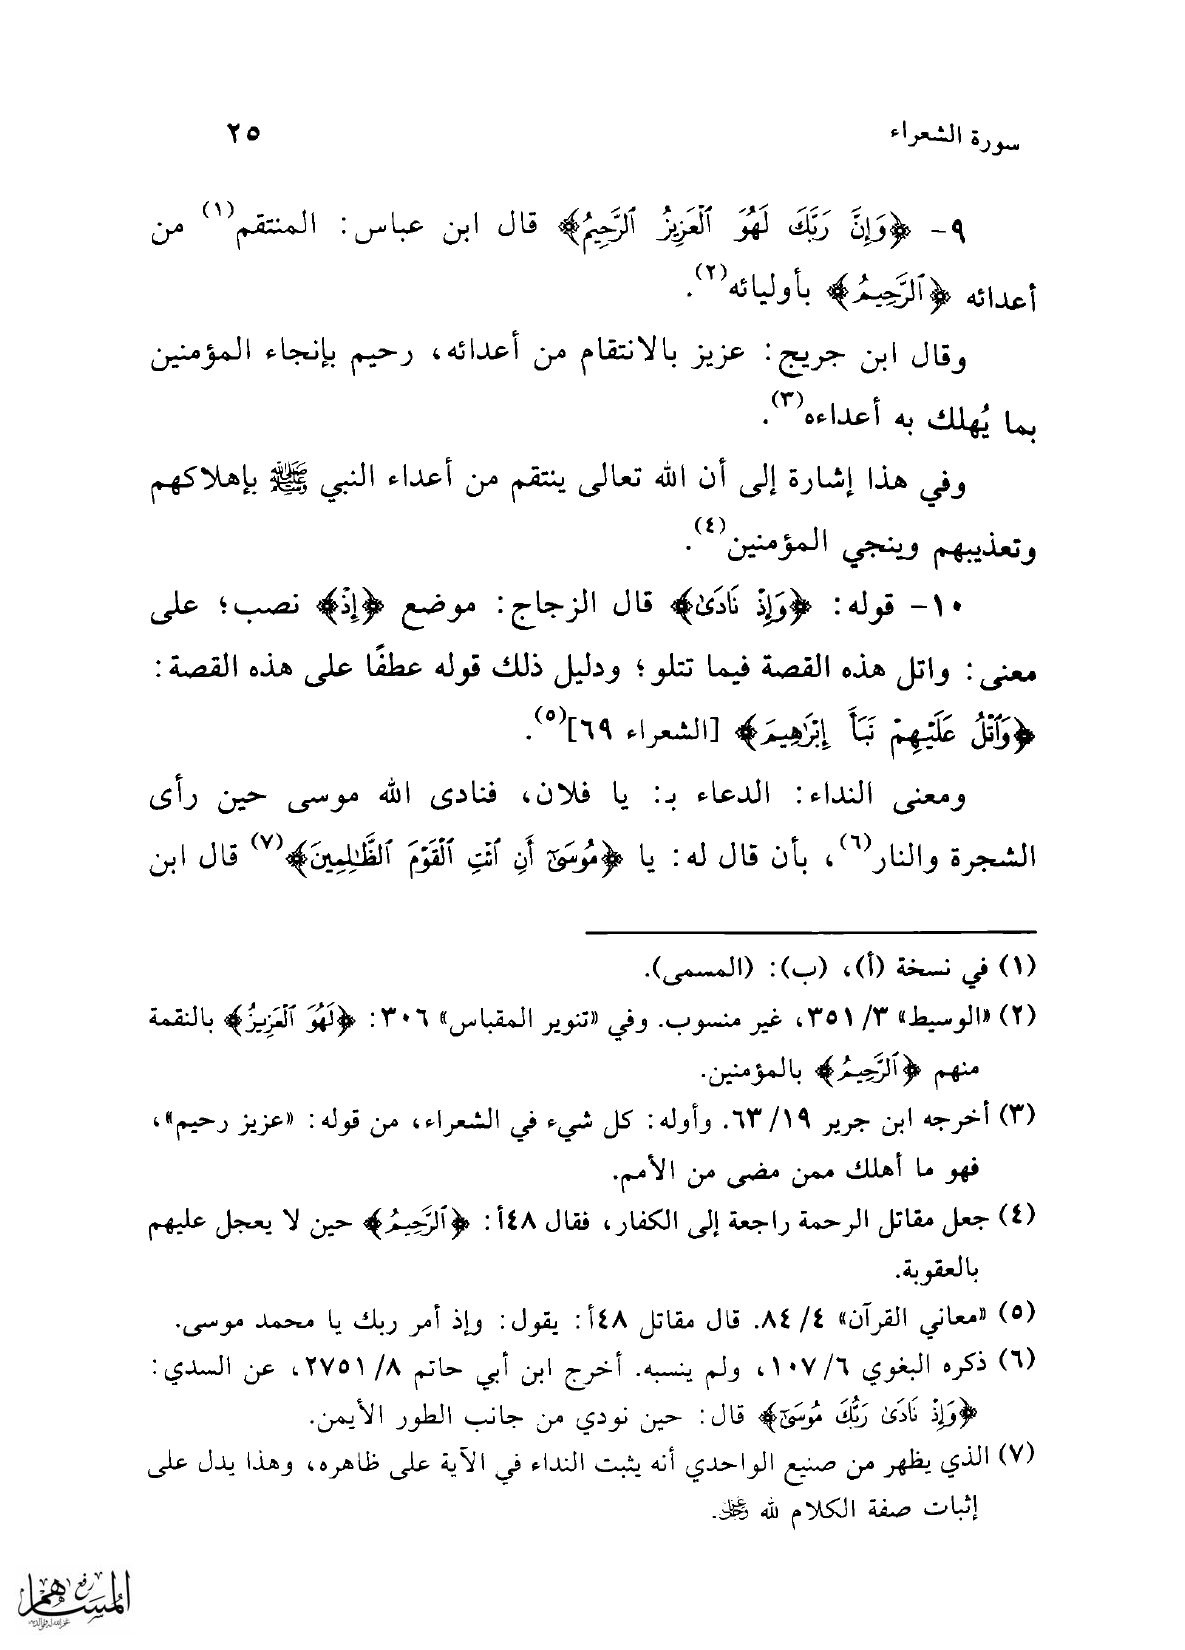 سورة الشعراء ٢٥
٩- ﴿وَإِنَّ رَبَّكَ لَهُوَ ٱلْعَزِيزُ ٱلرَّحِيمُ﴾ قال ابن عباس: المنتقم(١) من
أعدائه ﴿ٱلرَّحِيمُ﴾ بأوليائه(٢).
وقال ابن جريج: عزيز بالانتقام من أعدائه، رحيم بإنجاء المؤمنين
بما يُهلك به أعداءه(٣).
وفي هذا إشارة إلى أن الله تعالى ينتقم من أعداء النبي ﷺ بإهلاكهم
وتعذيبهم وينجي المؤمنين(٤).
١٠- قوله: ﴿وَإِذْ نَادَىٰ﴾ قال الزجاج: موضع ﴿إِذْ﴾ نصب؛ على
معنى: واتل هذه القصة فيما تتلو؛ ودليل ذلك قوله عطفًا على هذه القصة:
﴿وَٱتْلُ عَلَيْهِمْ نَبَأَ إِبْرَٰهِيمَ﴾ [الشعراء ٦٩](٥).
ومعنى النداء: الدعاء بـ: يا فلان، فنادى الله موسى حين رأى
الشجرة والنار(٦)، بأن قال له: يا ﴿مُوسَىٰٓ أَنِ ٱئْتِ ٱلْقَوْمَ ٱلظَّٰلِمِينَ﴾(٧) قال ابن
(١) في نسخة (أ)، (ب): (المسمى).
(٢) «الوسيط» ٣/ ٣٥١، غير منسوب. وفي «تنوير المقباس» ٣٠٦: ﴿لَهُوَ ٱلْعَزِيزُ﴾ بالنقمة
منهم ﴿ٱلرَّحِيمُ﴾ بالمؤمنين.
(٣) أخرجه ابن جرير ١٩/ ٦٣. وأوله: كل شيء في الشعراء، من قوله: «عزيز رحيم»،
فهو ما أهلك ممن مضى من الأمم.
(٤) جعل مقاتل الرحمة راجعة إلى الكفار، فقال ٤٨أ: ﴿ٱلرَّحِيمُ﴾ حين لا يعجل عليهم
بالعقوبة.
(٥) «معاني القرآن» ٤/ ٨٤. قال مقاتل ٤٨أ: يقول: وإذ أمر ربك يا محمد موسى.
(٦) ذكره البغوي ٦/ ١٠٧، ولم ينسبه. أخرج ابن أبي حاتم ٨/ ٢٧٥١، عن السدي:
﴿وَإِذْ نَادَىٰ رَبُّكَ مُوسَىٰٓ﴾ قال: حين نودي من جانب الطور الأيمن.
(٧) الذي يظهر من صنيع الواحدي أنه يثبت النداء في الآية على ظاهره، وهذا يدل على
إثبات صفة الكلام لله عز وجل.
رفع
المساهم